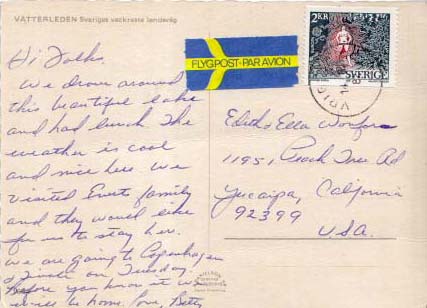 VÄTTERLEDEN Sveriges vackraste landsväg
Hi Folks.
We drove around
this beautiful lake
and had lunch The
weather is cool
and nice here We
visited family
and they would like
for us to stay here.
we are going to Copenhagen
on Tuesday.
Before you know it we
will be home. Love, Betty
FLYGPOST-PAR AVION
2KR
SVERIGE
Edith & Ella
11951 Peach Tree Rd
Yucaipa, California
92399
U.S.A.